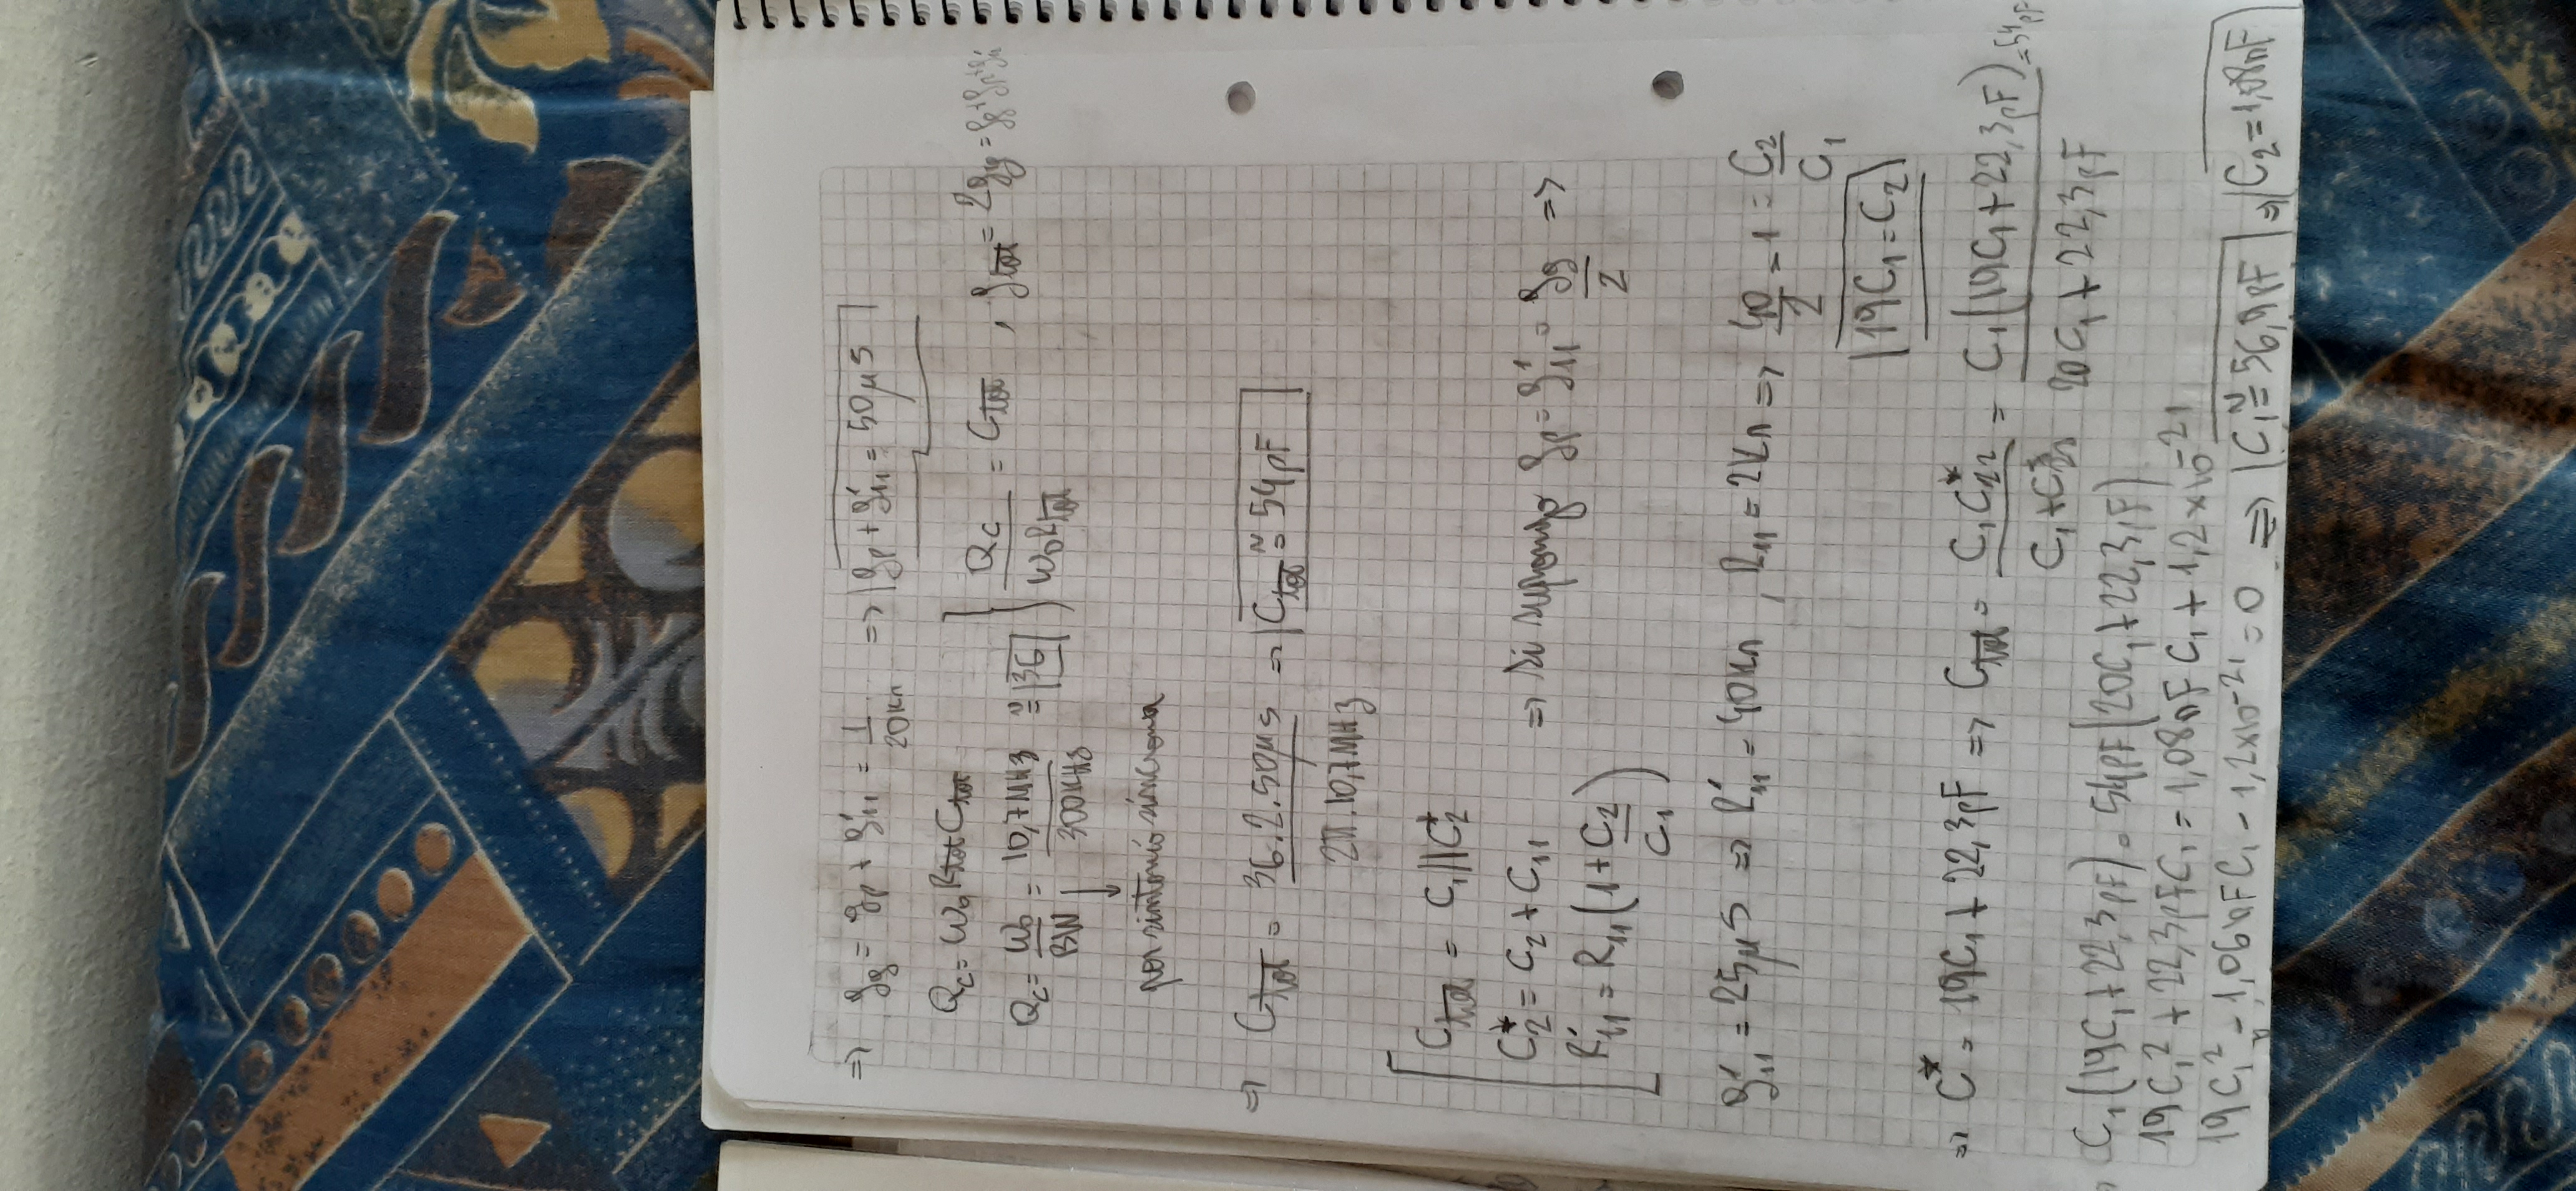 ⇒ g_g = g_p + g'_11 = 1/20KΩ ⇒ |g_p + g'_11 = 50μS|
Q_c = ω_0 R_tot C_tot
Q_c = ω_0/BW = 10,7MHz/300KHz ≅ |36| } Q_c/(ω_0 R_tot) = C_tot , g_tot = 2g_g = g_g + g_p + g'_11
↓
por sintonía síncrona
⇒ C_tot = 36.2.50μS / 2π.10,7MHz ⇒ |C_tot ≅ 54pF|
C_tot = C_1 || C_2*
C_2* = C_2 + C_11 ⇒ si supongo g_p = g'_11 = g_g/2 ⇒
R'_11 = R_11 (1 + C_2/C_1)
g'_11 = 25μS ⇒ R'_11 = 40KΩ , R_11 = 2KΩ ⇒ 40/2 - 1 = C_2/C_1
|19C_1 = C_2|
⇒ C* = 19C_1 + 22,3pF ⇒ C_tot = C_1 C*_22 / (C_1 + C*_22) = C_1(19C_1 + 22,3pF) / (20C_1 + 22,3pF) = 54pF
⇒ C_1(19C_1 + 22,3pF) = 54pF(20C_1 + 22,3pF)
19C_1² + 22,3pF C_1 = 1,08nF C_1 + 1,2×10^-21
19C_1² - 1,06nF C_1 - 1,2×10^-21 = 0 ⇒ |C_1 ≅ 56,9pF| ⇒ |C_2 = 1,08nF|